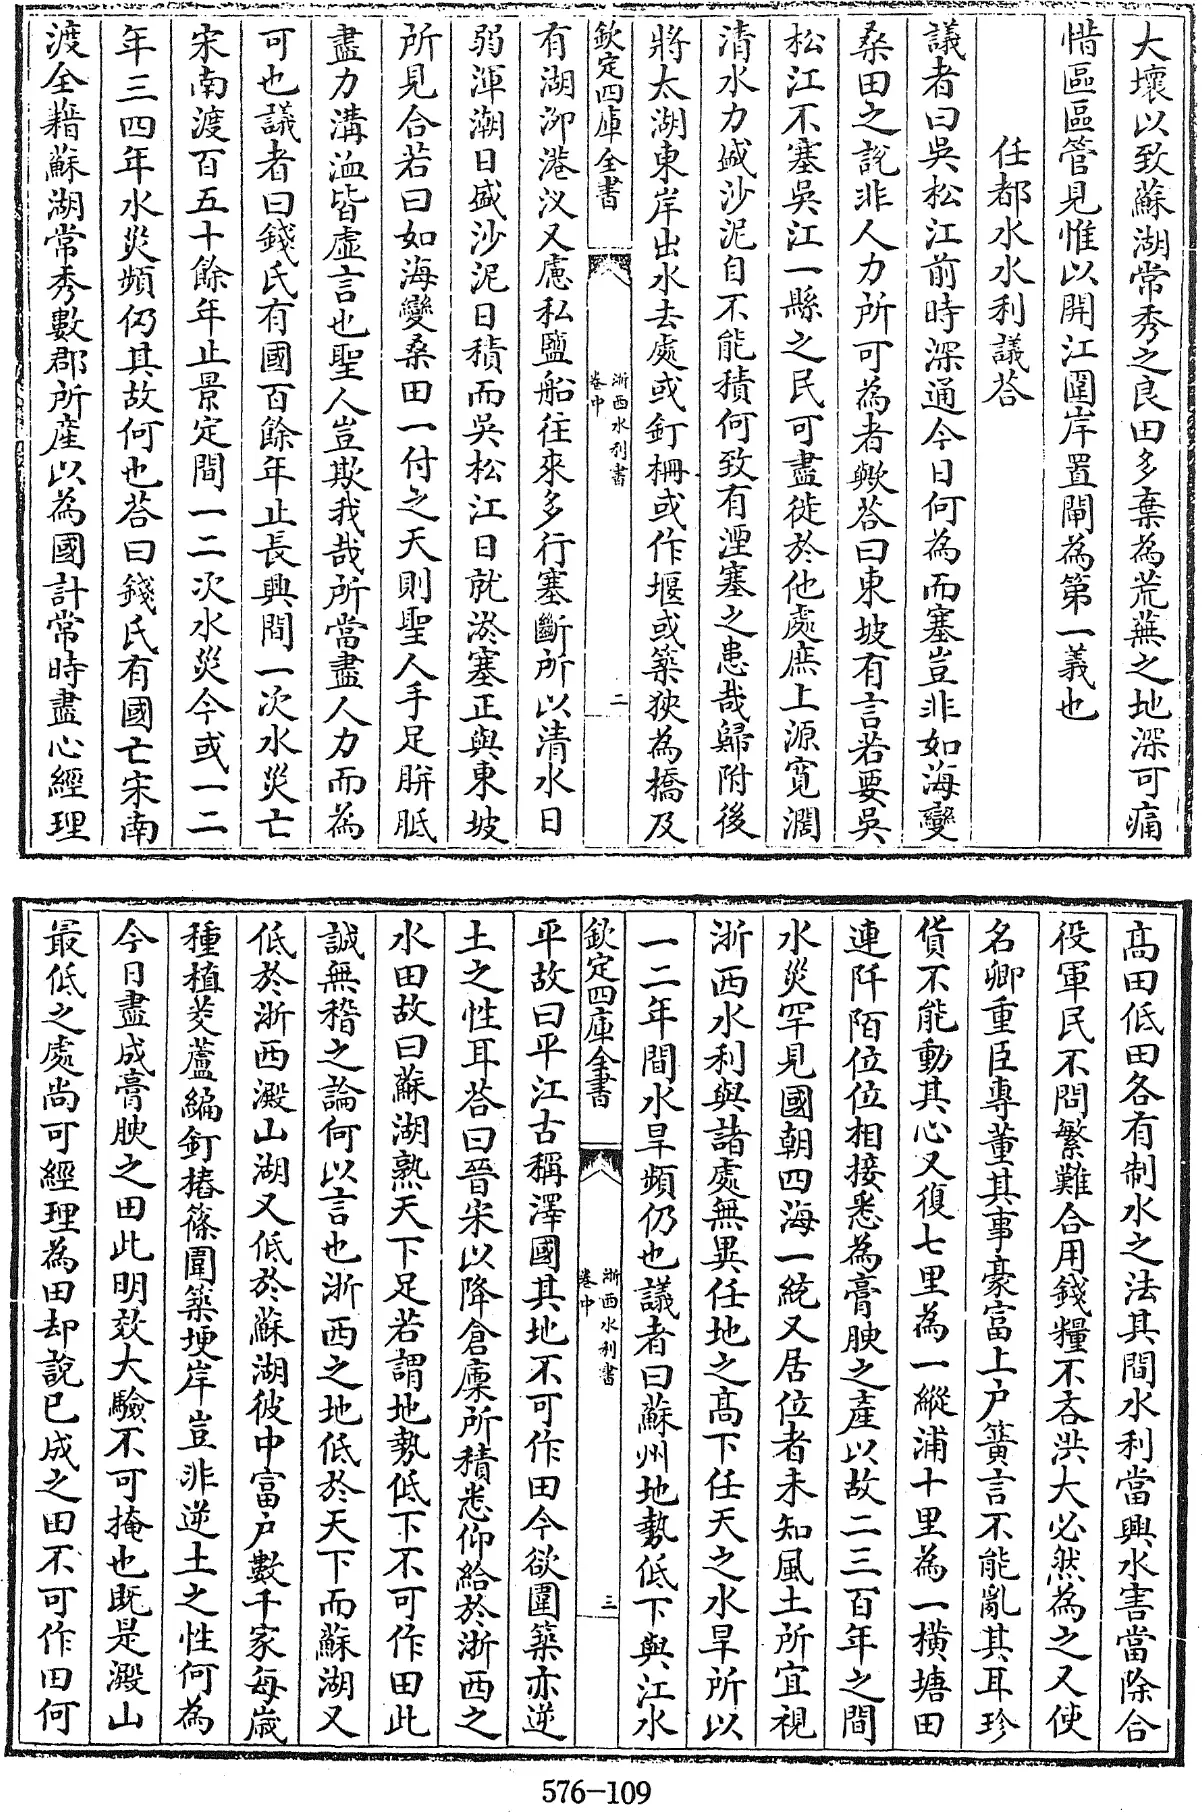 大壞以致蘇湖常秀之良田多棄為荒蕪之地深可痛
惜區區管見惟以開江圍岸置閘為第一義也
任都水水利議荅
議者曰吳松江前時深通今日何為而塞豈非如海變
桑田之說非人力所可為者歟荅曰東坡有言若要吳
松江不塞吳江一縣之民可盡徙於他處庶上源寛濶
清水力盛沙泥自不能積何致有湮塞之患哉歸附後
將太湖東岸出水去處或釘柵或作堰或築狹為橋及
欽定四庫全書
浙西水利書
卷中
二
有湖泖港汊又慮私鹽船往來多行塞斷所以清水日
弱渾潮日盛沙泥日積而吳松江日就淤塞正與東坡
所見合若曰如海變桑田一付之天則聖人手足胼胝
盡力溝洫皆虛言也聖人豈欺我哉所當盡人力而為
可也議者曰錢氏有國百餘年止長興間一次水災亡
宋南渡百五十餘年止景定間一二次水災今或一二
年三四年水災頻仍其故何也荅曰錢氏有國亡宋南
渡全藉蘇湖常秀數郡所產以為國計常時盡心經理
髙田低田各有制水之法其間水利當興水害當除合
役軍民不問繁難合用錢糧不吝洪大必然為之又使
名卿重臣專董其事豪富上户簧言不能亂其耳珍
貨不能動其心又復七里為一縱浦十里為一橫塘田
連阡陌位位相接悉為膏腴之產以故二三百年之間
水災罕見國朝四海一統又居位者未知風土所宜視
浙西水利與諸處無異任地之髙下任天之水旱所以
一二年間水旱頻仍也議者曰蘇州地勢低下與江水
欽定四庫全書
浙西水利書
卷中
三
平故曰平江古稱澤國其地不可作田今欲圍築亦逆
土之性耳荅曰晉宋以降倉廩所積悉仰給於浙西之
水田故曰蘇湖熟天下足若謂地勢低下不可作田此
誠無稽之論何以言也浙西之地低於天下而蘇湖又
低於浙西澱山湖又低於蘇湖彼中富户數千家每歲
種植茭蘆編釘樁篠圍築埂岸豈非逆土之性何為
今日盡成膏腴之田此明效大驗不可掩也既是澱山
最低之處尚可經理為田却說已成之田不可作田何
576-109